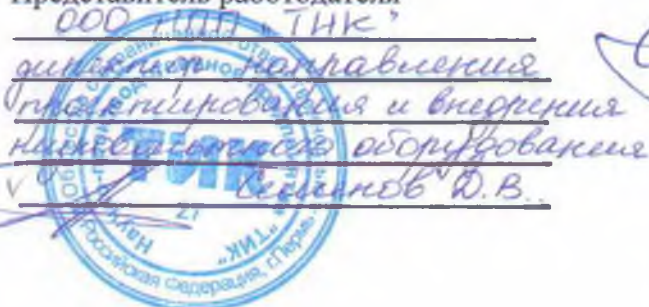 Представитель работодателя
ООО НПП "ТИК"
директор направления
проектирования и внедрения
оборудования
Семенов Д.В.
ТИК
Российская Федерация, г.Пермь
"ТИК"